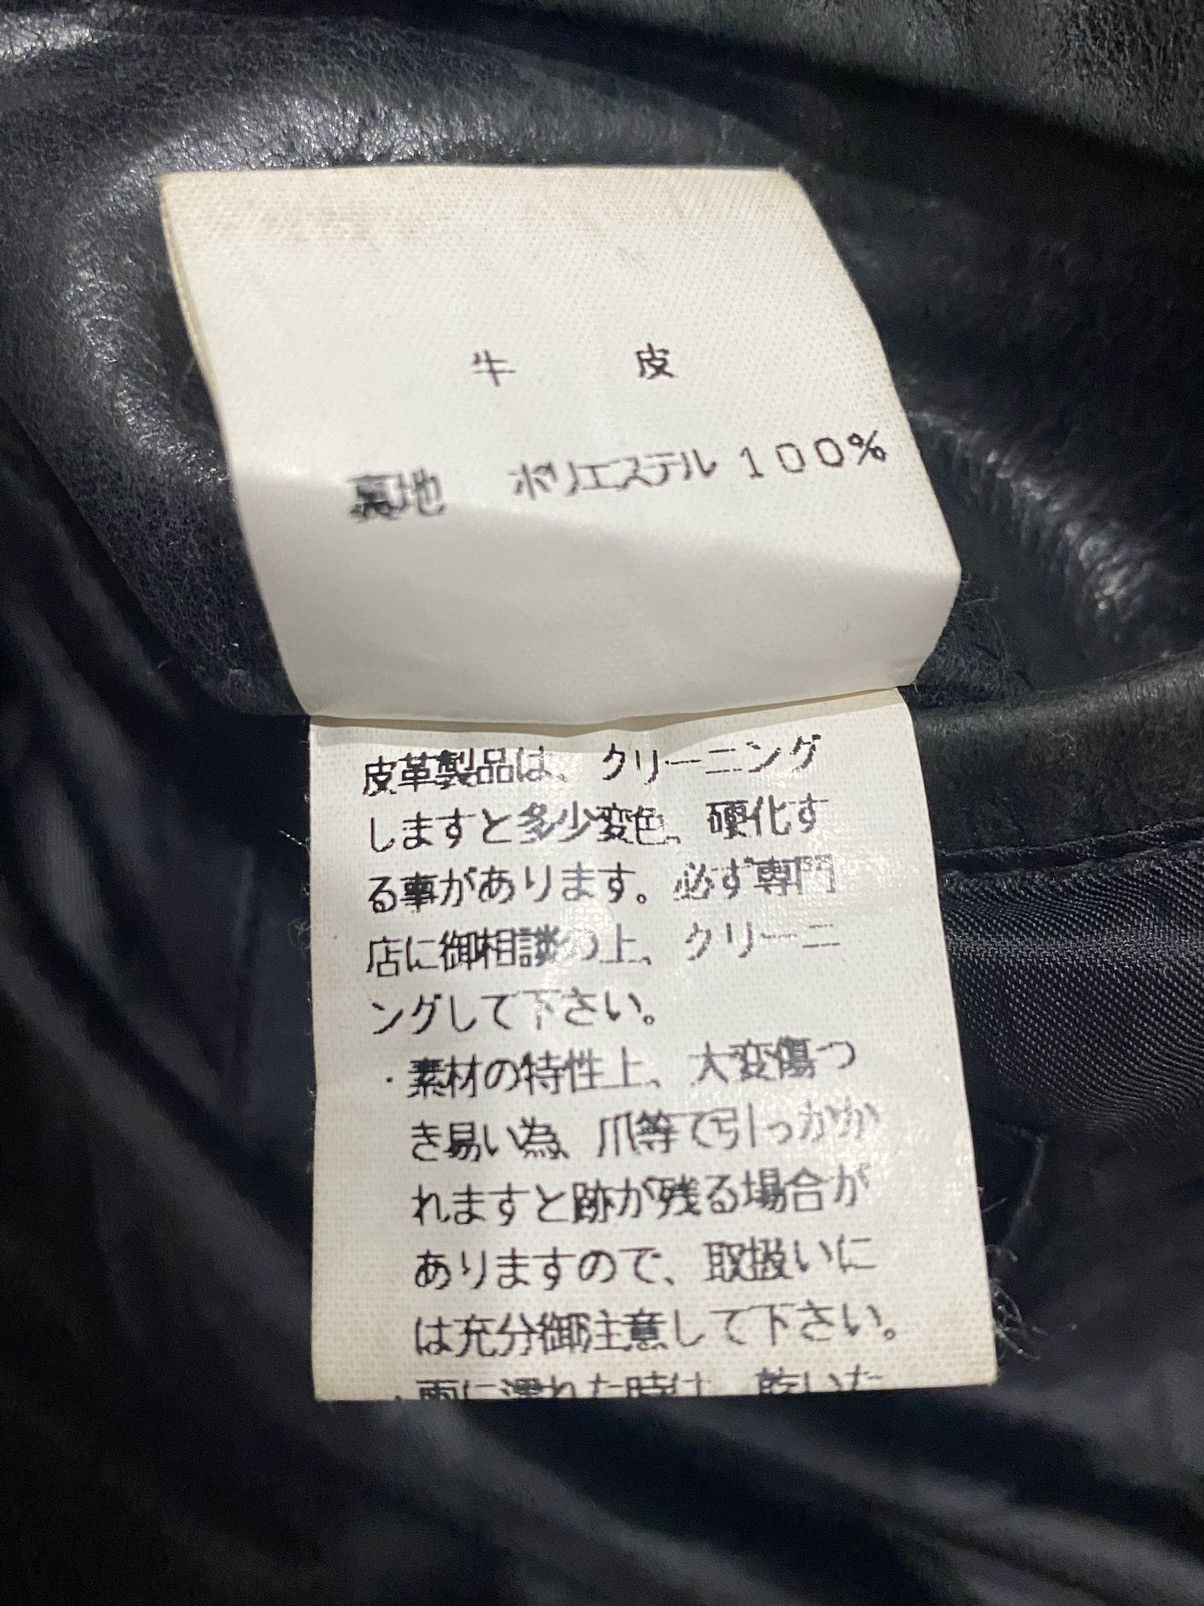 牛 皮
裏地 ポリエステル 100%
皮革製品は、クリーニング
しますと多少変色、硬化す
る事があります。必ず専門
店に御相談の上、クリーニ
ングして下さい。
・素材の特性上、大変傷つ
き易い為、爪等で引っかか
れますと跡が残る場合が
ありますので、取扱いに
は充分御注意して下さい。
・雨に濡れた時は、乾いた